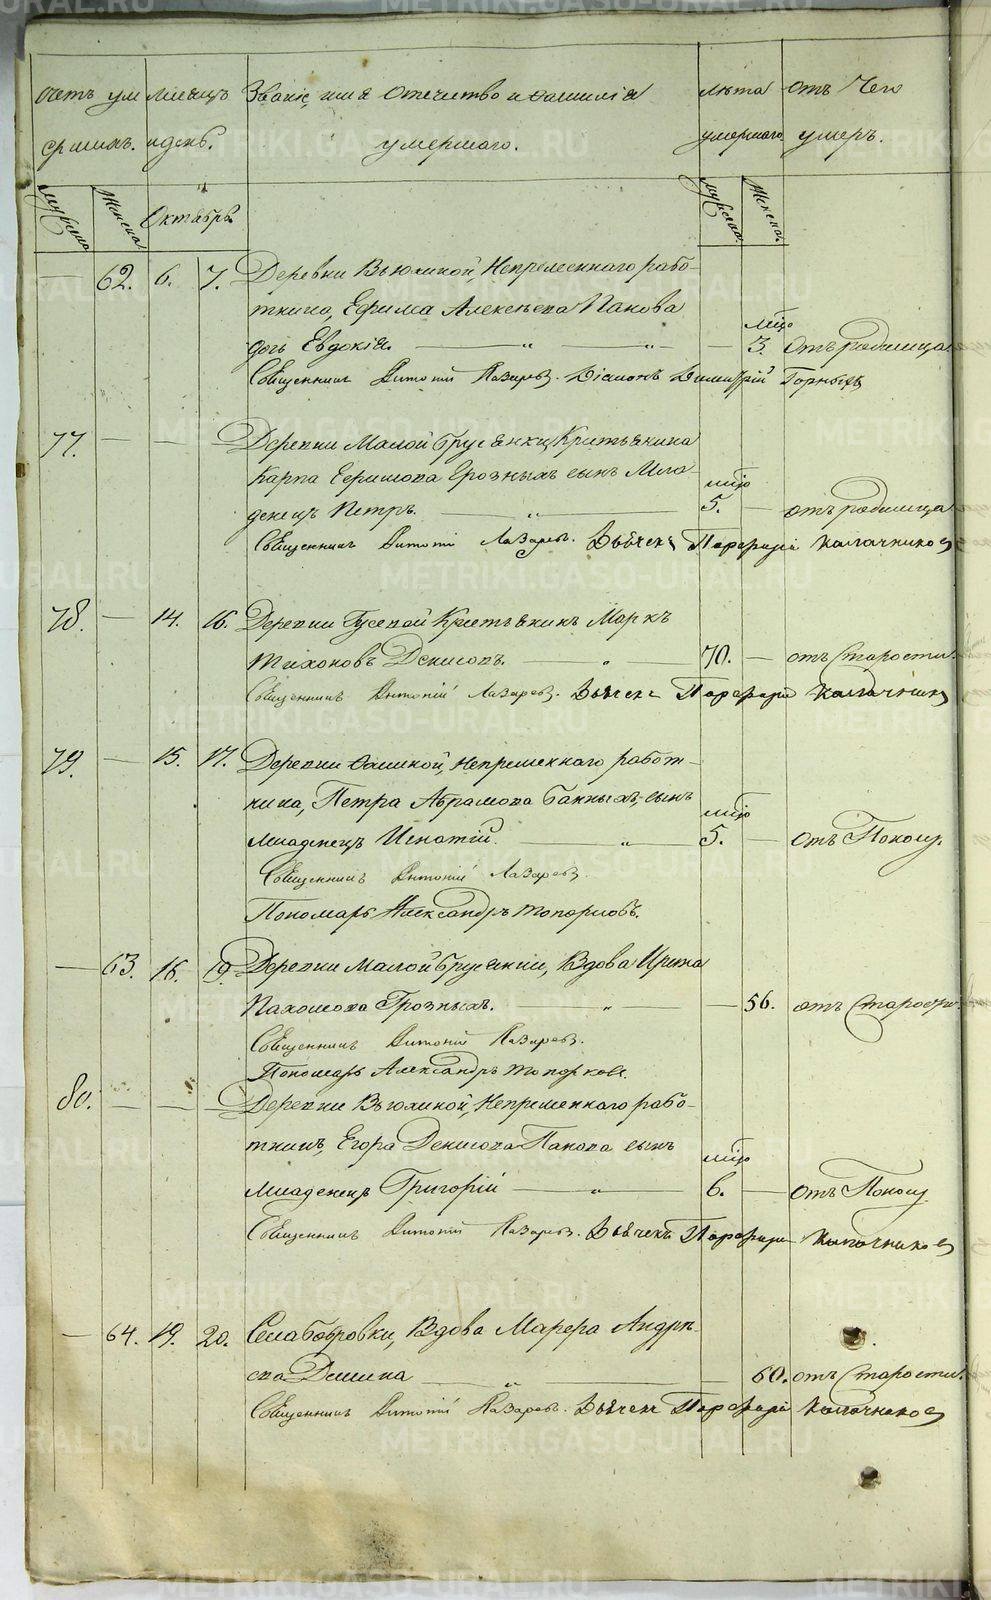 счетъ ум мѣсяцъ Званіе, имя отечество и фамилія лѣта отъ Чего
ершихъ. идень. умершаго. умершаго. умеръ.
мужеска Женска Октябрь мужеска Женска
62. 6. 7. Деревни Вьюхиной, Непременнаго рабо-
тника, Ефима Алексѣева Панова
дочь Евдокія. мцо 3. Отъ родимца
Священникъ Антоній Лазаревъ. Діаконъ Димитрій Горныхъ
77. Деревни Малой Брусянки, Крестьянина
Карпа Ефимова Грозныхъ сынъ Мла-
денецъ Петръ. мцо 5. отъ родимца
Священникъ Антоній Лазаревъ. Дьячекъ Порфирій Калачниковъ
78. 14. 16. Деревни Гусевой Крестьянинъ Маркъ
Тихоновъ Денисовъ. 70. отъ Старости.
Священникъ Антоній Лазаревъ. Дьячекъ Порфирій Калачников
79. 15. 17. Деревни Фоминой, Непременнаго работ-
ника, Петра Абрамова Банныхъ, сынъ
Младенецъ Игнатій. мцо 5. отъ Поносу.
Священникъ Антоній Лазаревъ.
Пономарь Александръ Топорковъ.
63. 16. 19. Деревни Малой Брусянки, Вдова Ирина
Пахомова Грозныхъ. 56. отъ Старости.
Священникъ Антоній Лазаревъ.
Пономарь Александръ Топорковъ.
80. Деревни Вьюхиной, Непременнаго рабо-
тника, Егора Денисова Панова сынъ
младенецъ Григорій мцо 6. отъ Поносу
Священникъ Антоній Лазаревъ. Дьячекъ Порфирій Калачниковъ
64. 19. 20. Села Бобровки, Вдова Марфа Андрѣ-
ева Демина 60. отъ Старости.
Священникъ Антоній Лазаревъ. Дьячекъ Порфирій Калачниковъ
METRIKI.GASO-URAL.RU